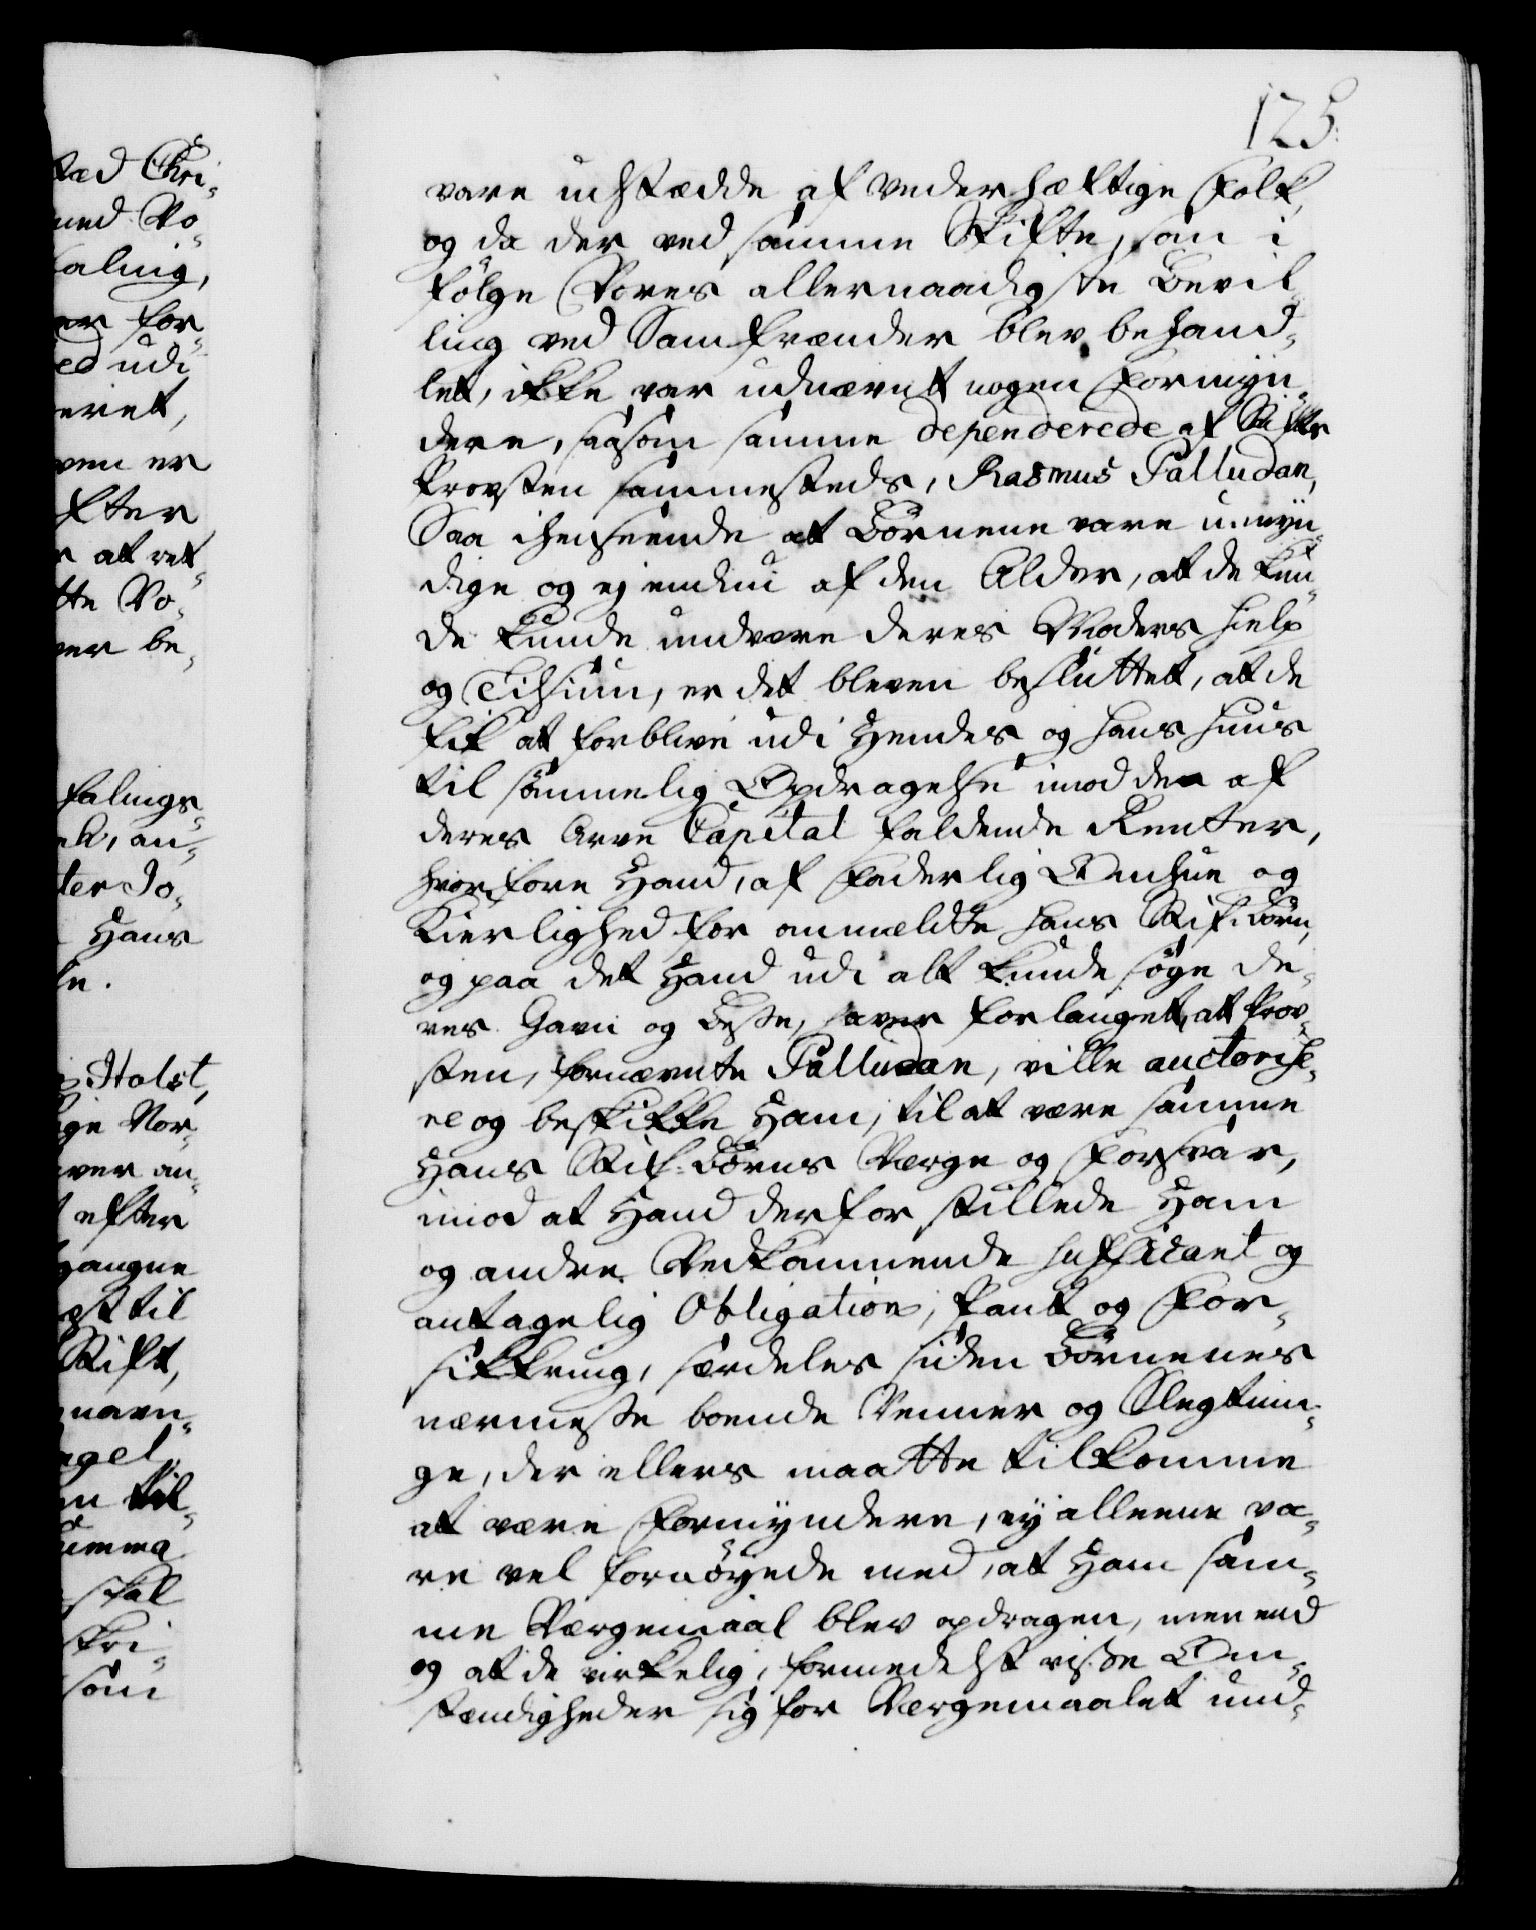 125.
vare udstædde af vederhæftige Folk,
og da der ved samme Skifte, som i
følge Vores allernaadigste Bevil„
ling ved Samfrænder blev behand„
let, ikke var udnævnt nogen Formyn„
dere, saasom samme dependerede af Stifts
Provsten sammesteds, Rasmus Palludan,
Saa i henseende at Börnene vare umyn„
dige og ej endnu af den Alder, at de kun„
de kunde undvære deres Moders Hielp
og Tilsiun, er det bleven besluttet, at de
fik at forblive udi Hendes og hans Huus
til sömmelig Opdragelse imod den af
deres Arve Capital faldende Renter,
hvorfore Hand, af Faderlig Omhue og
Kierlighed for anmeldte hans Stifbörn,
og paa det Hand udi alt kunde söge de„
res Gavn og Beste, haver forlanget, at Prov„
sten, fornævnte Palludan, ville auctorise„
re og beskikke Ham, til at være samme
Hans Stif-Börns Værge og Forsvar,
imod at Hand derfor stillede Ham
og andre Vedkommende sufficant og
antagelig Obligation, Pant og For„
sikkring, særdeles siden Börnenes
nærmeste boende Venner og Slegtnin„
ge, der ellers maatte tilkomme
at være Formyndere, ey alleene va„
re vel fornöyede med, at Ham sam„
me Værgemaal blev opdragen, men end
og at de virkelig, formedelst visse Om„
stændigheder sig for Værgemaalet und„
stæd Chri„
med Vo„
taling,
ar for„
ed udi
eret,
ven er
fter
r at ret„
tte Vo„
ver be„
falings„
ter Jo„
Hans
Holst,
ge Nor„
ver an„
efter
gangne
st til
Stift,
navn„
agel„
n til„
umma
skal
skri„
som